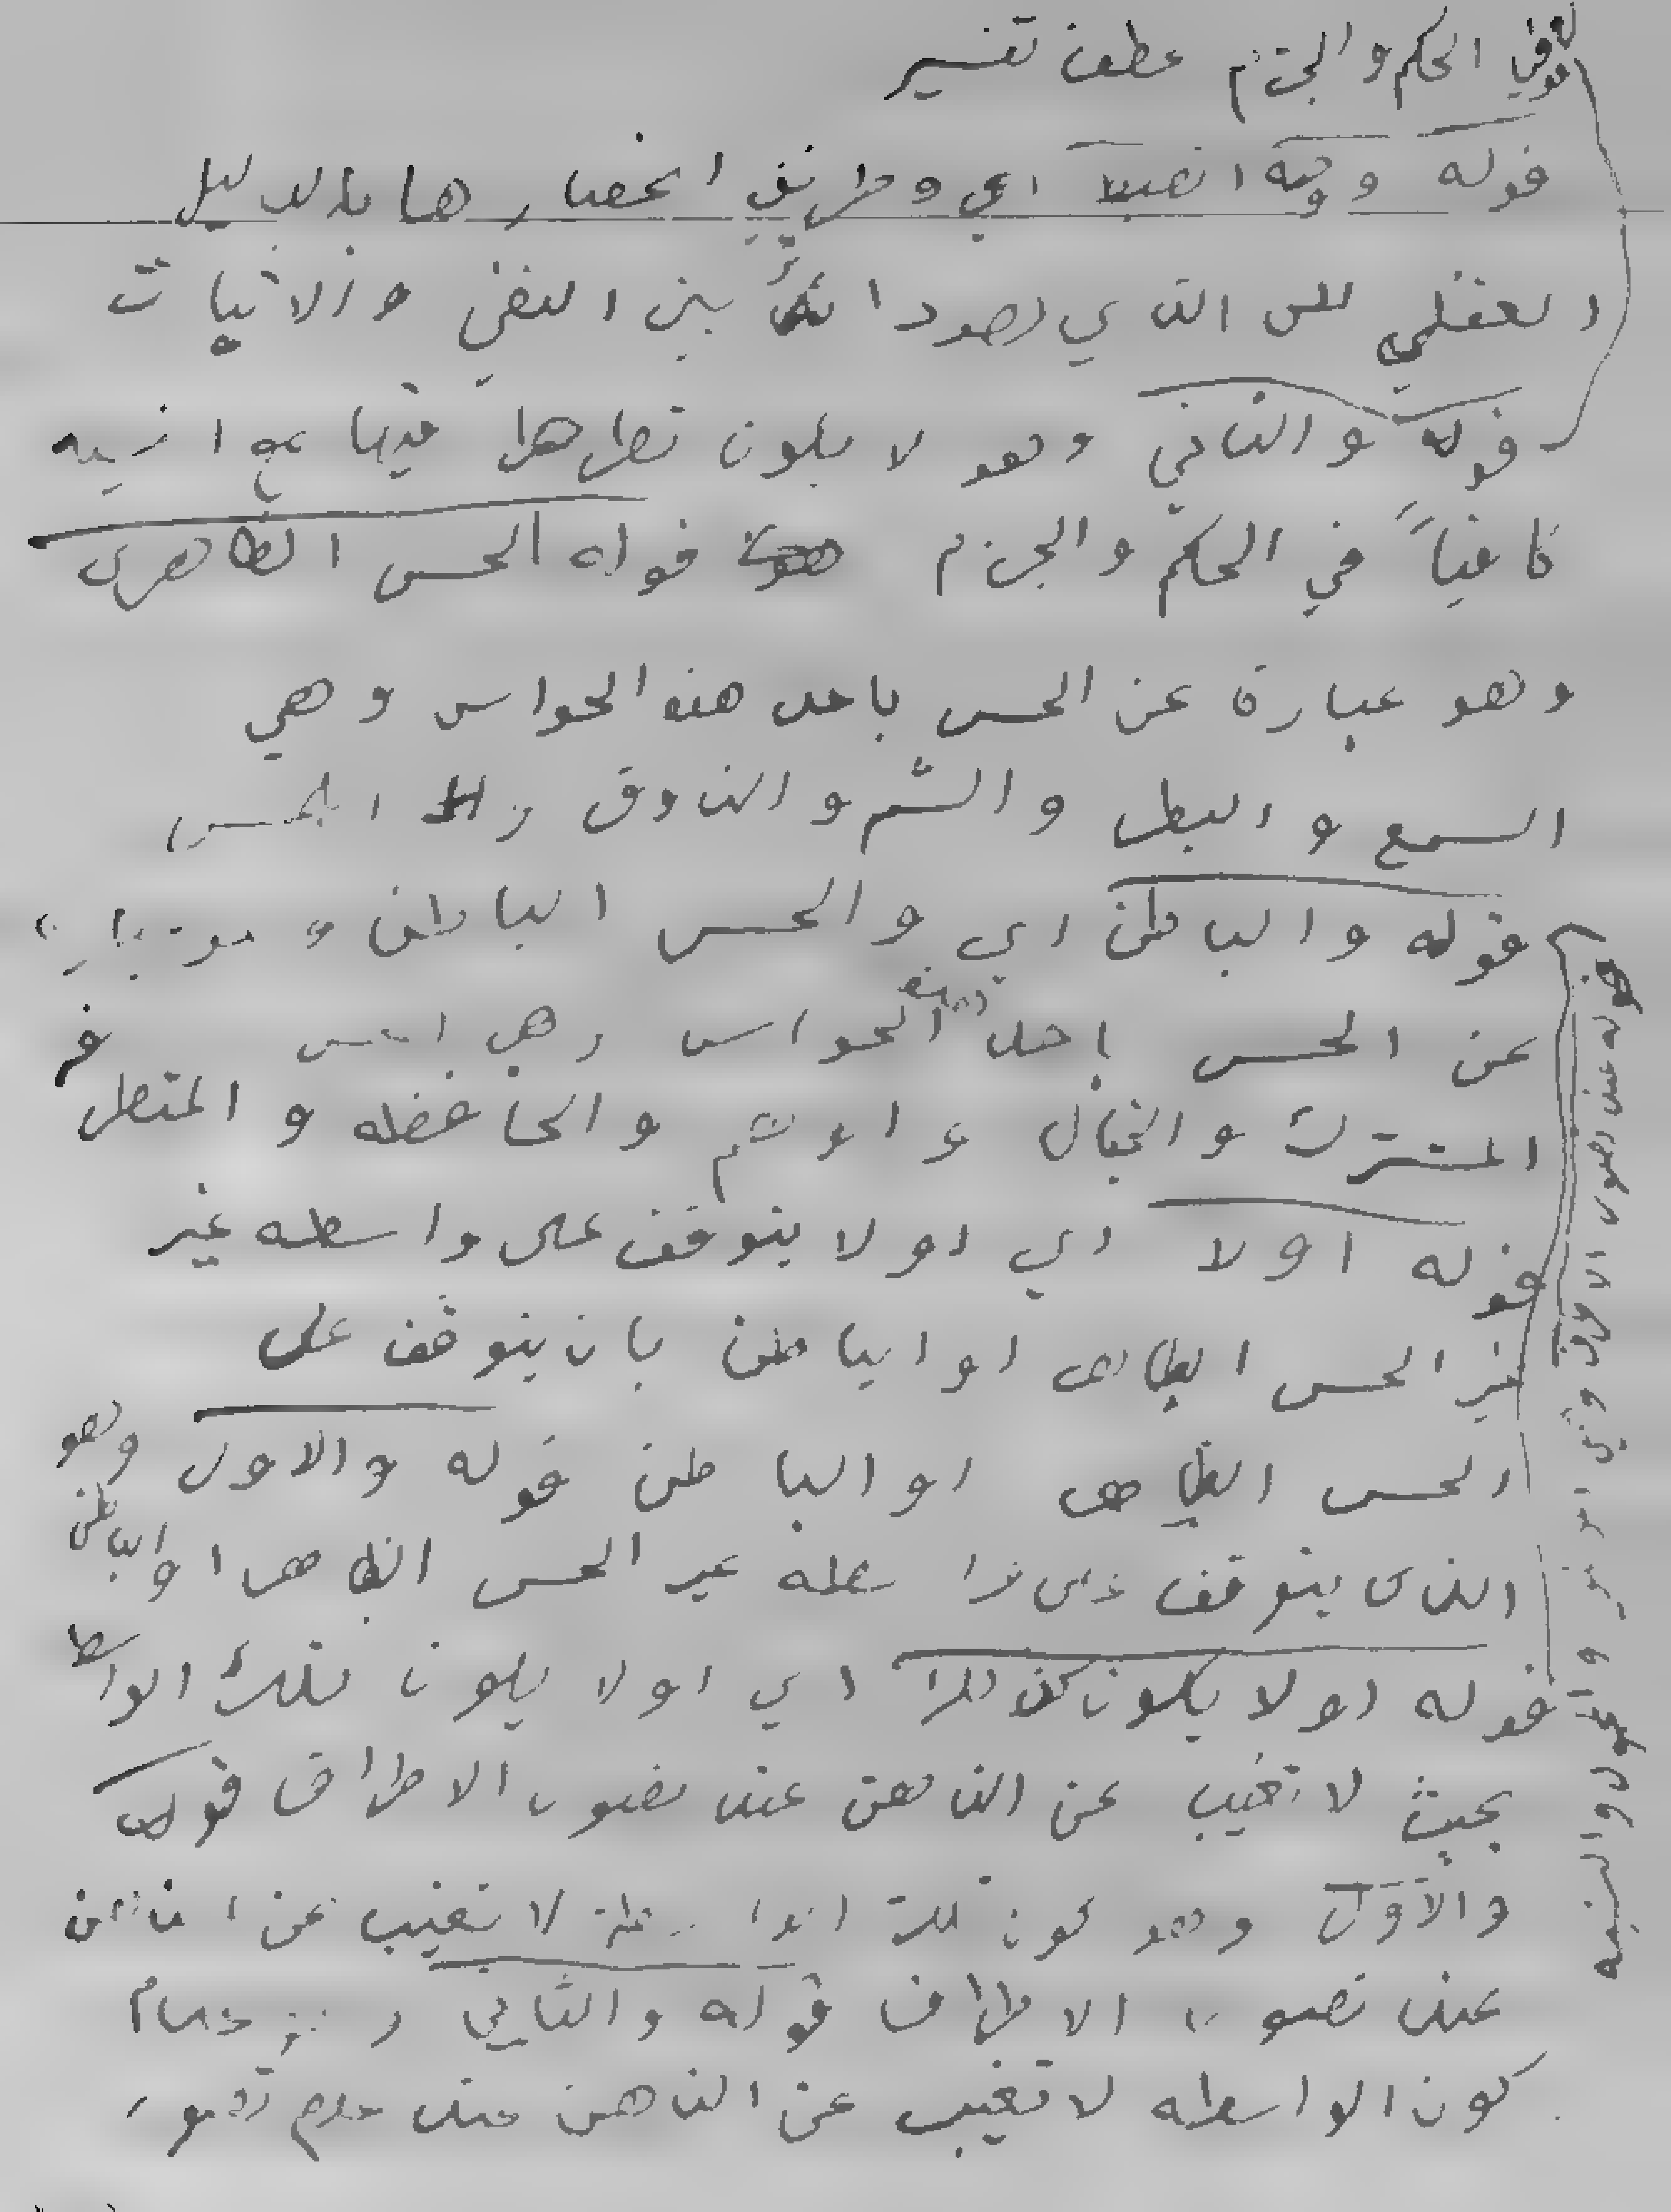 في الحكم والجزم عطف تفسير
قوله ووجه الضبط اي وطريق انحصارها بالدليل
العقلي الذي هو دائر بين النفي والاثبات
قوله والثاني وهو لا يكون تصور طرفيها مع النسبه
كافياً في الحكم والجزم قوله الحس الظاهرى
وهو عبارة عن الحس باحد هذه الحواس وهي
السمع والبصر والشم والذوق واللمس
قوله والباطن اي والحس الباطن وهو عبارة
عن الحس باحد هذه الحواس وهي الحس
المشترك والخيال والوهم والحافظه والمتصرفه
قوله اولا اي اولا يتوقف على واسطه غير
غير الحس الظاهر او الباطن بان يتوقف على
الحس الظاهر او الباطن قوله والاول وهو
الذى يتوقف على واسطه غير الحس الظاهر او الباطن
قوله اولا يكون كذلك اي اولا يكون تلك الواسطه
بحيث لا تغيب عن الذهن عند تصور الاطراف قوله
والأول وهو كون تلك الواسطة لا تغيب عن الذهن
عند تصور الاطراف قوله والثاني وهو عدم
كون الواسطه لا تغيب عن الذهن عند عدم تصور
قوله عند تصور الاطراف وهي الموضوع والمحمول والنسبه